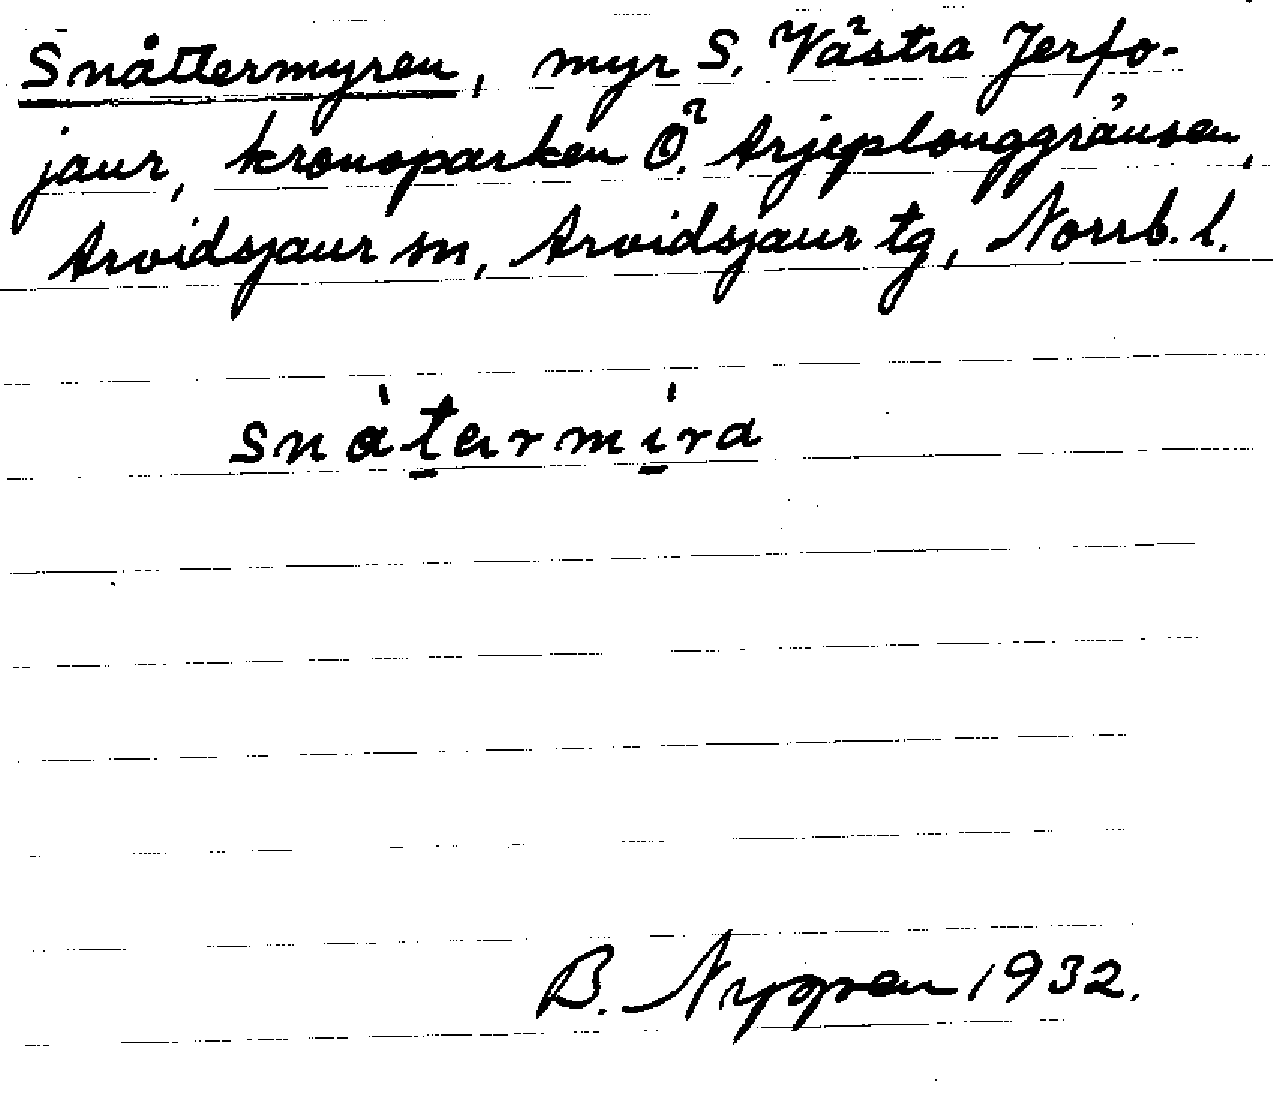 Snåttermyren, myr S. Västra Jerfo-
jaur, kronoparken Ö. Arjeplouggränsen,
Arvidsjaur sn, Arvidsjaur tg, Norrb. l.
B. Nygren 1932.